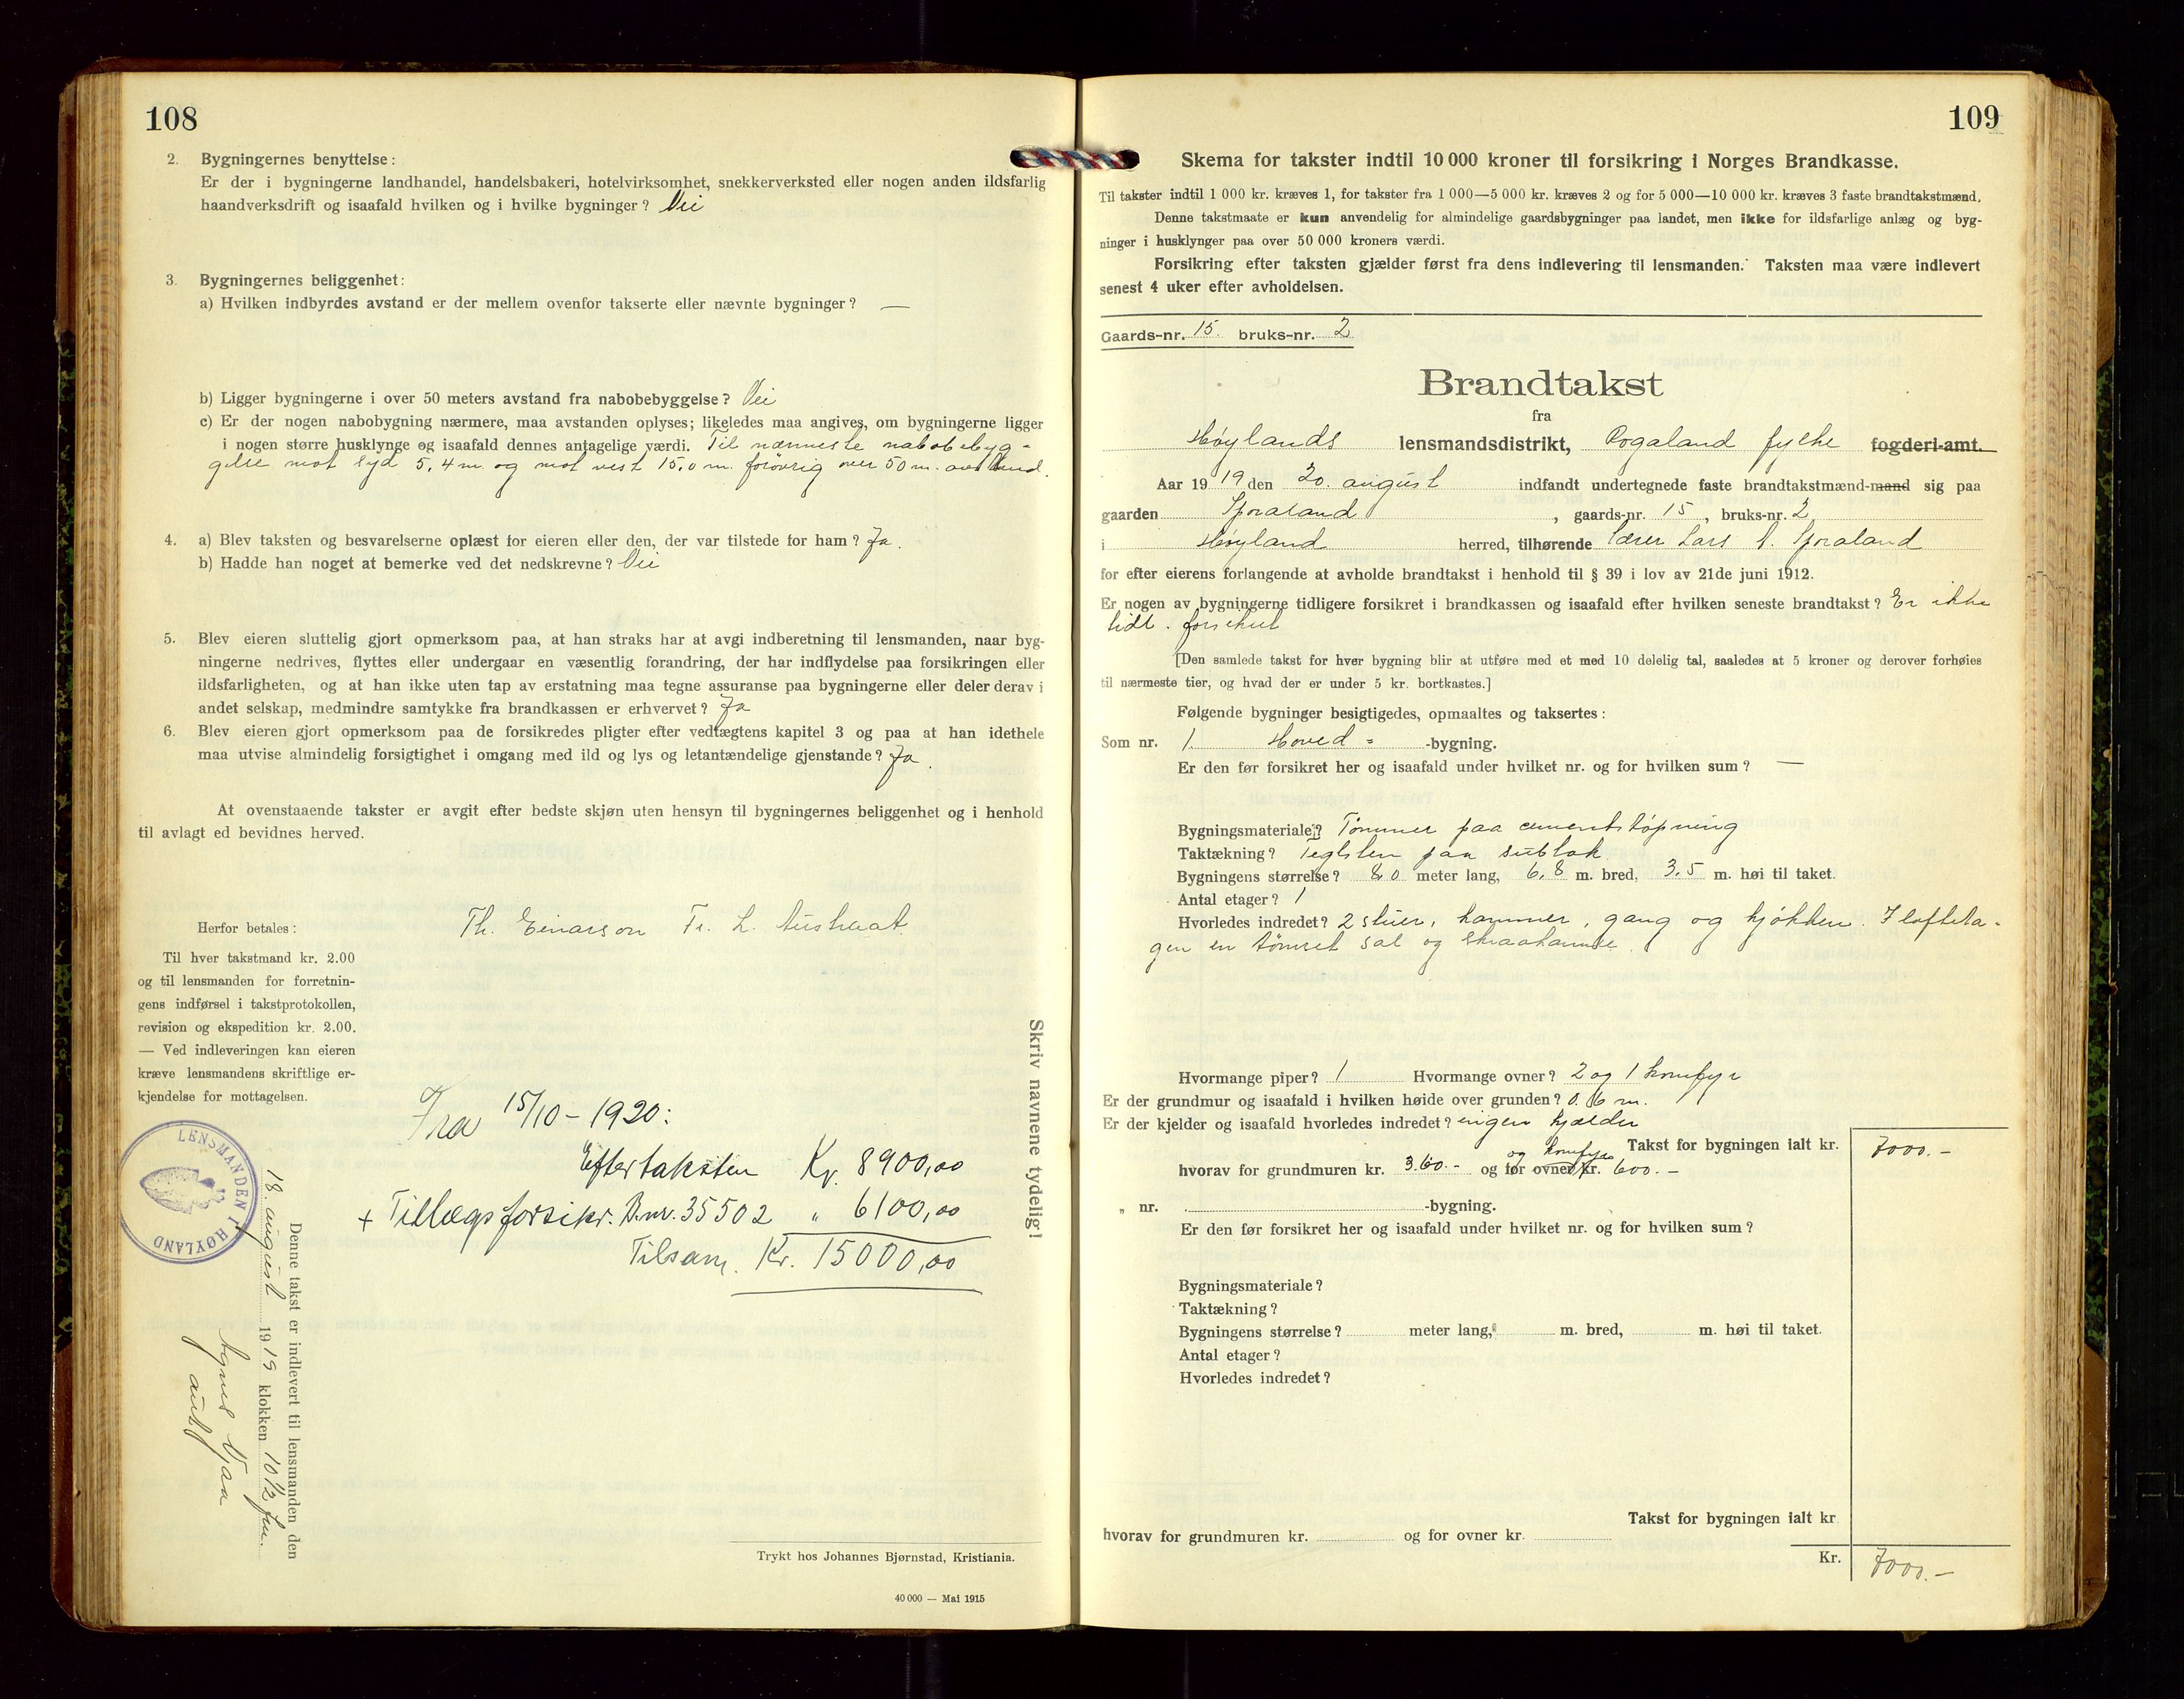 108
2. Bygningernes benyttelse:
Er der i bygningerne landhandel, handelsbakeri, hotelvirksomhet, snekkerverksted eller nogen anden ildsfarlig
haandverksdrift og isaafald hvilken og i hvilke bygninger? Nei
3. Bygningernes beliggenhet:
a) Hvilken indbyrdes avstand er der mellem ovenfor takserte eller nævnte bygninger? —
b) Ligger bygningerne i over 50 meters avstand fra nabobebyggelse? Nei
c) Er der nogen nabobygning nærmere, maa avstanden oplyses; likeledes maa angives, om bygningerne ligger
i nogen større husklynge og isaafald dennes antagelige værdi. Til nærmeste nabobebyg-
gelse mot syd 5,4 m. og mot vest 15,0 m. forøvrig over 50 m. avstand.
4. a) Blev taksten og besvarelserne oplæst for eieren eller den, der var tilstede for ham? Ja.
b) Hadde han noget at bemerke ved det nedskrevne? Nei
5. Blev eieren sluttelig gjort opmerksom paa, at han straks har at avgi indberetning til lensmanden, naar byg-
ningerne nedrives, flyttes eller undergaar en væsentlig forandring, der har indflydelse paa forsikringen eller
ildsfarligheten, og at han ikke uten tap av erstatning maa tegne assuranse paa bygningerne eller deler derav i
andet selskap, medmindre samtykke fra brandkassen er erhvervet? Ja
6. Blev eieren gjort opmerksom paa de forsikredes pligter efter vedtægtens kapitel 3 og paa at han idethele
maa utvise almindelig forsigtighet i omgang med ild og lys og letantændelige gjenstande? Ja.
At ovenstaaende takster er avgit efter bedste skjøn uten hensyn til bygningernes beliggenhet og i henhold
til avlagt ed bevidnes herved.
Herfor betales: Th. Einarson Fr. L. Austraat
Til hver takstmand kr. 2.00
og til lensmanden for forretnin-
gens indførsel i takstprotokollen,
revision og ekspedition kr. 2.00.
— Ved indleveringen kan eieren
kræve lensmandens skriftlige er-
kjendelse for mottagelsen.
Skriv navnene tydelig!
Fra 15/10 - 1920:
Eftertaksten Kr. 8900,00
+ Tillægsforsikr. B.nr. 35502 " 6100,00
Tilsam. Kr. 15000,00
LENSMANDEN I HØYLAND
Denne takst er indlevert til lensmanden den
18. august 1919 klokken 10 1/2 fm.
Agnes
Trykt hos Johannes Bjørnstad, Kristiania.
40 000 — Mai 1915
109
Skema for takster indtil 10 000 kroner til forsikring i Norges Brandkasse.
Til takster indtil 1 000 kr. kræves 1, for takster fra 1 000—5 000 kr. kræves 2 og for 5 000—10 000 kr. kræves 3 faste brandtakstmænd.
Denne takstmaate er kun anvendelig for almindelige gaardsbygninger paa landet, men ikke for ildsfarlige anlæg og byg-
ninger i husklynger paa over 50 000 kroners værdi.
Forsikring efter taksten gjælder først fra dens indlevering til lensmanden. Taksten maa være indlevert
senest 4 uker efter avholdelsen.
Gaards-nr. 15. bruks-nr. 2
Brandtakst
fra
Høylands lensmandsdistrikt, Rogaland fylke fogderi-amt.
Aar 1919 den 20. august indfandt undertegnede faste brandtakstmænd-mand sig paa
gaarden Skjæraland, gaards-nr. 15, bruks-nr. 2
i Høyland herred, tilhørende Lærer Lars
for efter eierens forlangende at avholde brandtakst i henhold til § 39 i lov av 21de juni 1912.
Er nogen av bygningerne tidligere forsikret i brandkassen og isaafald efter hvilken seneste brandtakst? Er ikke
tidl. forsikret
[Den samlede takst for hver bygning blir at utføre med et med 10 delelig tal, saaledes at 5 kroner og derover forhøies
til nærmeste tier, og hvad der er under 5 kr. bortkastes.]
Følgende bygninger besigtigedes, opmaaltes og taksertes:
Som nr. 1. Hoved-bygning.
Er den før forsikret her og isaafald under hvilket nr. og for hvilken sum? —
Bygningsmateriale? Tømmer paa cementstøpning
Taktækning? Teglsten paa sutak.
Bygningens størrelse? 8,0 meter lang, 6,8 m. bred, 3,5 m. høi til taket.
Antal etager? 1
Hvorledes indredet? 2 stuer, kammer, gang og kjøkken. I lofteta-
gen en tømret sal og skraakammer.
Hvormange piper? 1 Hvormange ovner? 2 og 1 komfyr
Er der grundmur og isaafald i hvilken høide over grunden? 0.6 m.
Er der kjelder og isaafald hvorledes indredet? ingen kjælder
Takst for bygningen ialt kr. 7000.-
hvorav for grundmuren kr. 360.- og for ovner og komfyr kr. 600.-
„ nr. -bygning.
Er den før forsikret her og isaafald under hvilket nr. og for hvilken sum?
Bygningsmateriale?
Taktækning?
Bygningens størrelse? meter lang, m. bred, m. høi til taket.
Antal etager?
Hvorledes indredet?
Takst for bygningen ialt kr
hvorav for grundmuren kr. og for ovner kr.
Kr. 7000.-